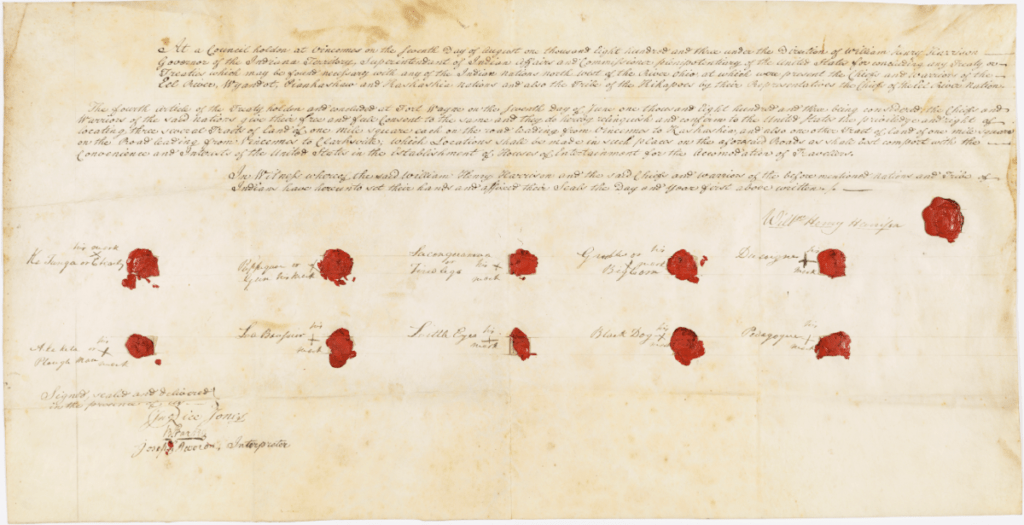 At a Council holden at Vincennes on the seventh Day of August one thousand Eight hundred and three under the Direction of William Henry Harrison
Governor of the Indiana Territory, Superintendent of Indian Affairs and Commissioner plenipotentiary of the United States for concluding any Treaty or
Treaties which may be found necessary with any of the Indian nations north west of the River Ohio at which were present the Chiefs and Warriors of the
Eel River, Wyandot, Piankashaw and Kaskaskia nations and also the Tribe of the Kikapoes by their Representatives the Chiefs of the Eel River nation
The fourth Article of the Treaty holden and concluded at Fort Wayne on the seventh day of June one thousand eight hundred and three being considered the Chiefs and
Warriors of the said nations give their free and full Consent to the same and they do hereby relinquish and confirm to the United States the priviledge and right of
locating three several Tracts of land of one mile square each on the road leading from Vincennes to Kaskaskia, and also one other Tract of land of one mile square
on the Road leading from Vincennes to Clarksville, which Locations shall be made in such places on the aforesaid Roads as shall best comport with the
Convenience and Interest of the United States in the Establishment of Houses of Entertainment for the accomodation of Travellers
In Witness whereof, the said William Henry Harrison and the said Chiefs and warriors of the before mentioned nations and Tribe of
Indians have hereunto set their hands and affixed their Seals the Day and Year first above written
Will<sup>m</sup> Henry Harrison
his mark
Ka Tunga or Charly
or
his mark
for
his
mark
his
mark
his
mark
or
Plough Man
his
mark
his
mark
Little Eyes his
mark
Black Dog his
mark
his
mark
Signed sealed and delivered
in the presence of
Jn° Rice Jones
Joseph Barron, Interpreter